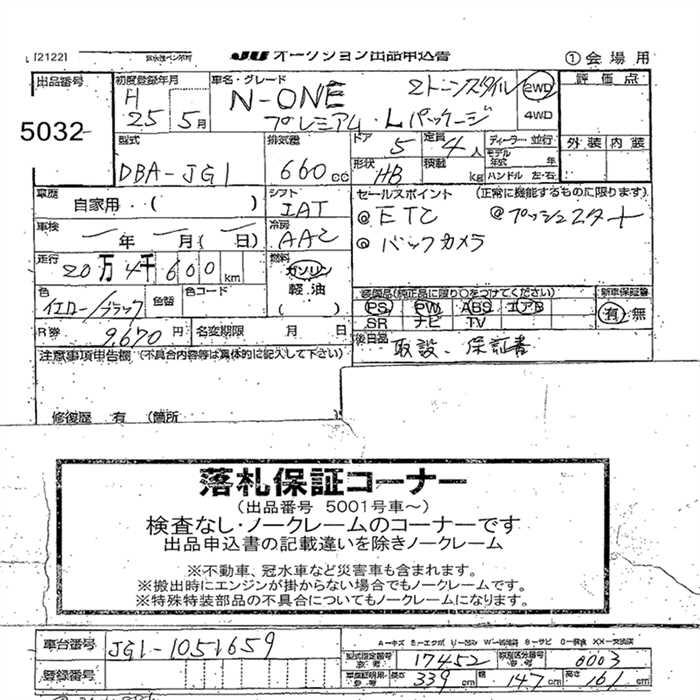 [2122]
JU オークション出品申込書 ①会場用
出品番号 5032
初度登録年月 H 25 5月
車名・グレード N-ONE 2トーンスタイル
プレミアム・Lパッケージ
2WD
4WD
評価点
外装 内装
型式 DBA-JG1
排気量 660cc
ドア 5 定員 4人
形状 HB 積載 kg
ディーラー・並行
モデル年式 年
ハンドル 左・右
車歴 自家用・( )
シフト IAT
セールスポイント (正常に機能するものに限ります)
@ETC @プッシュスタート
@バックカメラ
車検 ー年 ー月(ー日)
冷房 AAC
走行 20万4千600km
燃料 ガソリン
軽・油
( )
色 イエロー/ブラック 色替 色コード
装備品(純正品に限り○をつけてください)
PS PW ABS エアB
SR ナビ TV
新車保証書
有 無
R券 9,670円 名変期限 月 日
後日品 取説、保証書
注意事項申告欄 (不具合内容等は具体的に記入して下さい)
修復歴 有 (箇所 )
落札保証コーナー
(出品番号 5001号車~)
検査なし・ノークレームのコーナーです
出品申込書の記載違いを除きノークレーム
※不動車、冠水車など災害車も含まれます。
※搬出時にエンジンが掛からない場合でもノークレームです。
※特殊特装部品の不具合についてもノークレームになります。
車台番号 JG1-1051659
型式指定番号 17452 類別区分番号 0003
登録番号
長さ 339cm 幅 147cm 高さ 161cm